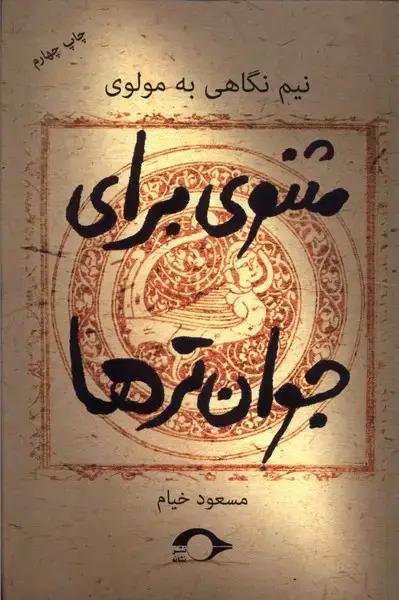 چاپ چهارم
نیم نگاهی به مولوی
مثنوی برای
جوان‌ترها
مسعود خیام
نشر
نشانه